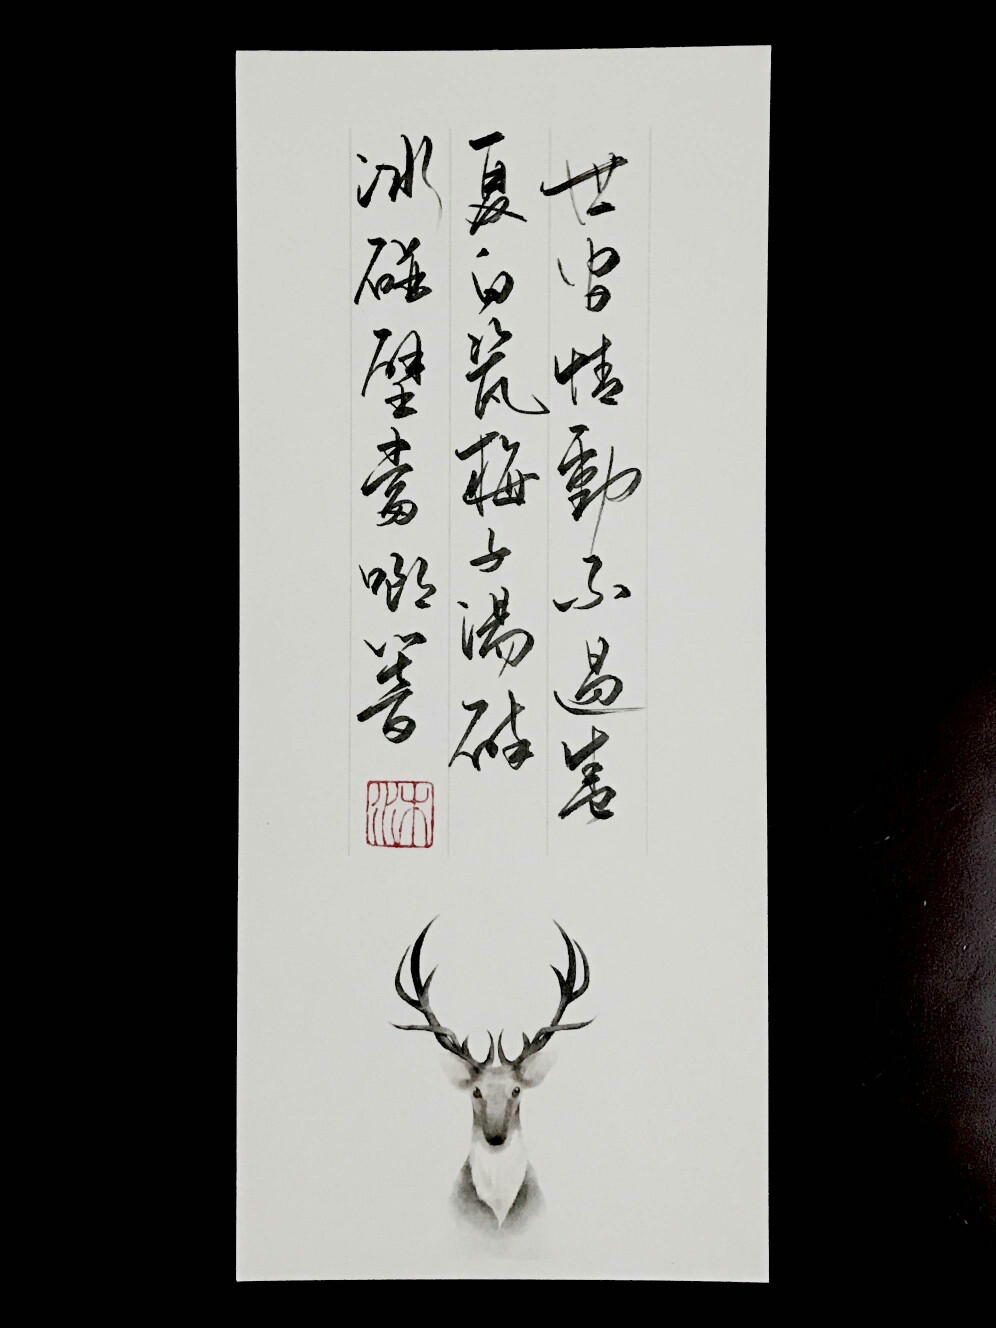 世間情動不過盛
夏白瓷梅子湯碎
冰碰壁當啷響
沐